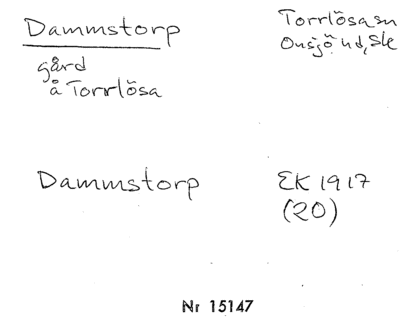 Dammstorp
Torrlösa sn
Onsjö hd, Sk
gård
å Torrlösa
Dammstorp
EK 1917
(20)
Nr 15147